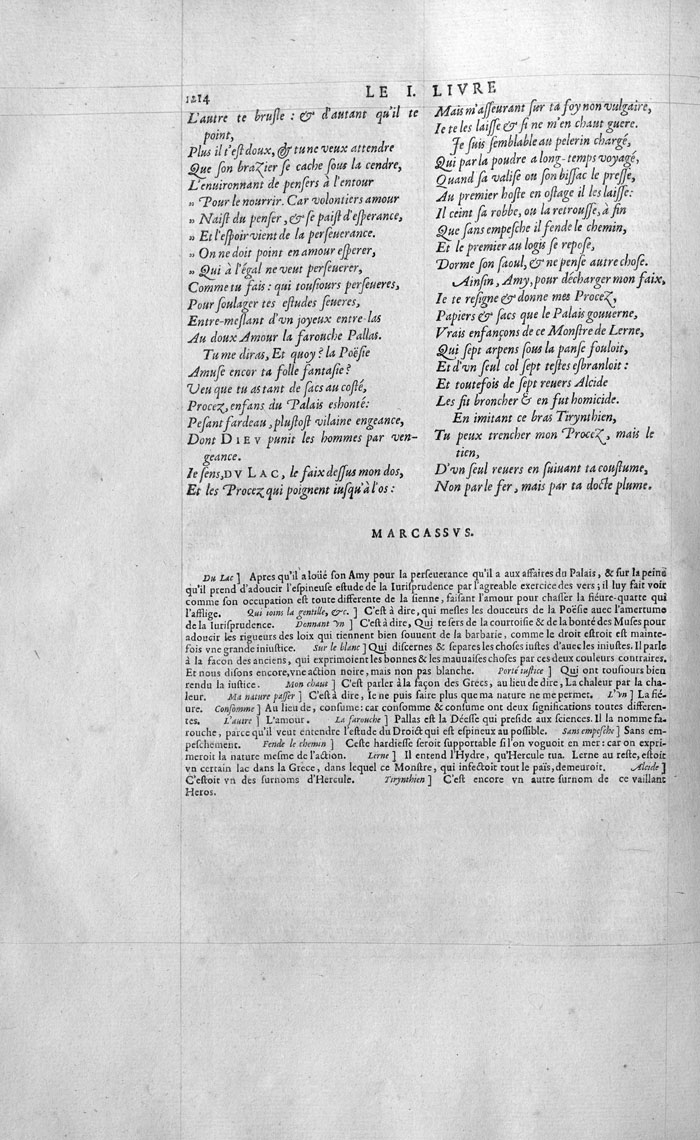 1214
LE I. LIVRE
L'autre te brusle : & d'autant qu'il te
point,
Plus il t'est doux, & tu ne veux attendre
Que son brazier se cache sous la cendre,
L'enuironnant de pensers à l'entour
» Pour le nourrir. Car volontiers amour
» Naist du penser, & se paist d'esperance,
» Et l'espoir vient de la perseuerance.
» On ne doit point en amour esperer,
» Qui à l'égal ne veut perseuerer,
Comme tu fais : qui tousiours perseueres,
Pour soulager tes estudes seueres,
Entre-meslant d'vn joyeux entre-las
Au doux Amour la farouche Pallas.
Tu me diras, Et quoy ? la Poësie
Amuse encor ta folle fantasie ?
Veu que tu as tant de sacs au costé,
Procez, enfans du Palais eshonté:
Pesant fardeau, plustost vilaine engeance,
Dont DIEV punit les hommes par ven-
geance.
Ie sens, DV LAC, le faix dessus mon dos,
Et les Procez qui poignent iusqu'à l'os :
Mais m'asseurant sur ta foy non vulgaire,
Ie te les laisse & si ne m'en chaut guere.
Je suis semblable au pelerin chargé,
Qui par la poudre a long-temps voyagé,
Quand sa valise ou son bissac le presse,
Au premier hoste en ostage il les laisse:
Il ceint sa robbe, ou la retrousse, à fin
Que sans empesche il fende le chemin,
Et le premier au logis se repose,
Dorme son saoul, & ne pense autre chose.
Ainsin, Amy, pour décharger mon faix,
Ie te resigne & donne mes Procez,
Papiers & sacs que le Palais gouuerne,
Vrais enfançons de ce Monstre de Lerne,
Qui sept arpens sous la panse fouloit,
Et d'vn seul col sept testes esbranloit :
Et toutefois de sept reuers Alcide
Les fit broncher & en fut homicide.
En imitant ce bras Tirynthien,
Tu peux trencher mon Procez, mais le
tien,
D'vn seul reuers en suiuant ta coustume,
Non par le fer, mais par ta docte plume.
MARCASSVS.
Du Lac ] Apres qu'il a loüé son Amy pour la perseuerance qu'il a aux affaires du Palais, & sur la peine
qu'il prend d'adoucir l'espineuse estude de la Iurisprudence par l'agreable exercice des vers ; il luy fait voir
comme son occupation est toute differente de la sienne, faisant l'amour pour chasser la fiéure-quarte qui
l'afflige. Qui ioins la gentille, &c. ] C'est à dire, qui mesles les douceurs de la Poësie auec l'amertume
de la Iurisprudence. Donnant vn ] C'est à dire, Qui te sers de la courtoisie & de la bonté des Muses pour
adoucir les rigueurs des loix qui tiennent bien souuent de la barbarie, comme le droit estroit est mainte-
fois vne grande iniustice. Sur le blanc ] Qui discernes & separes les choses iustes d'auec les iniustes. Il parle
à la façon des anciens, qui exprimoient les bonnes & les mauuaises choses par ces deux couleurs contraires.
Et nous disons encore, vne action noire, mais non pas blanche. Porté iustice ] Qui ont tousiours bien
rendu la iustice. Mon chaut ] C'est parler à la façon des Grecs, au lieu de dire, La chaleur par la cha-
leur. Ma nature passer ] C'est à dire, Ie ne puis faire plus que ma nature ne me permet. L'vn ] La fié-
ure. Consomme ] Au lieu de, consume : car consomme & consume ont deux significations toutes differen-
tes. L'autre ] L'amour. La farouche ] Pallas est la Déesse qui preside aux sciences. Il la nomme fa-
rouche, parce qu'il veut entendre l'estude du Droict qui est espineux au possible. Sans empesche ] Sans em-
peschement. Fende le chemin ] Ceste hardiesse seroit supportable si l'on voguoit en mer : car on expri-
meroit la nature mesme de l'action. Lerne ] Il entend l'Hydre, qu'Hercule tua. Lerne au reste, estoit
vn certain lac dans la Grece, dans lequel ce Monstre, qui infectoit tout le païs, demeuroit. Alcide ]
C'estoit vn des surnoms d'Hercule. Tirynthien ] C'est encore vn autre surnom de ce vaillant
Heros.